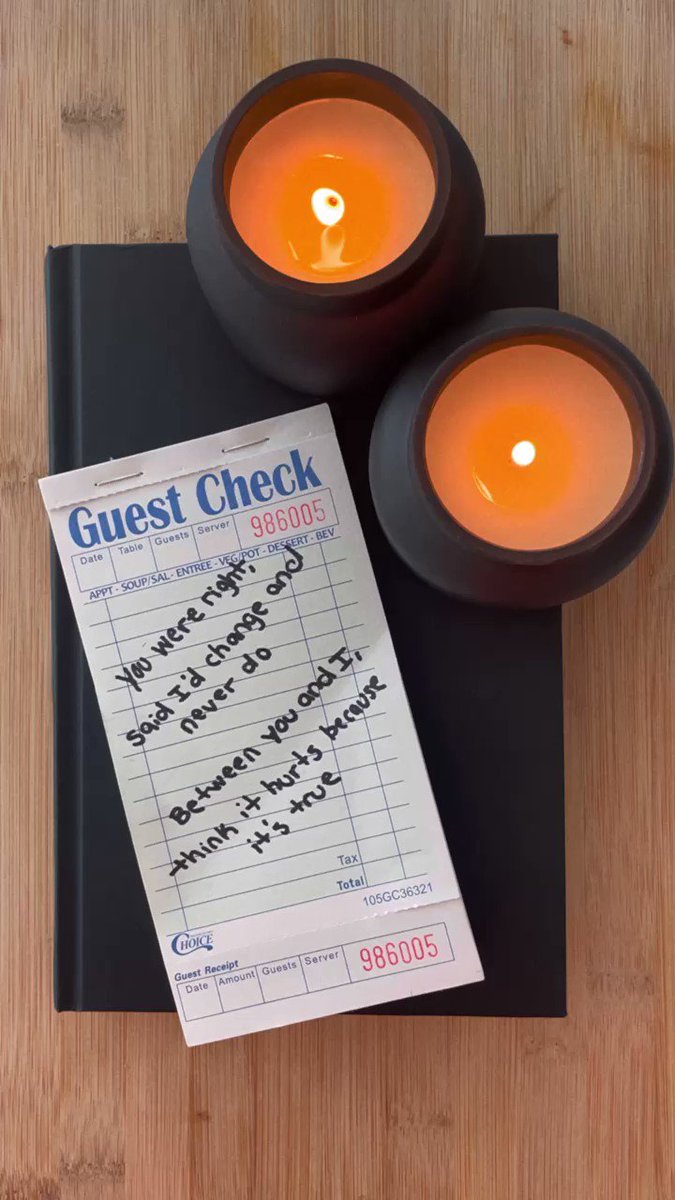 Guest Check
Date Table Guests Server 986005
APPT - SOUP/SAL - ENTREE - VEG/POT - DESSERT - BEV
You were right,
said I'd change and
never do
Between you and I,
think it hurts because
it's true
Tax
Total
105GC36321
CHOICE
Guest Receipt
Date Amount Guests Server 986005